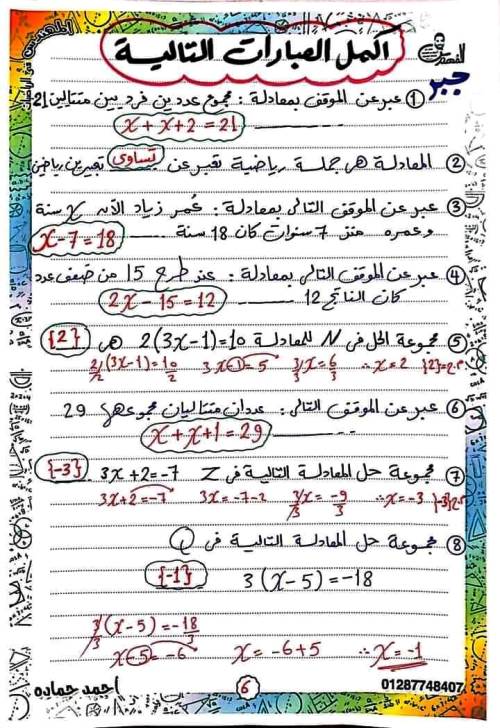 اكمل العبارات التالية
جبر
① عبر عن الموقف بمعادلة : مجموع عددين فرديين متتاليين 21
x + x + 2 = 21
② المعادلة هى جملة رياضية تعبر عن تساوى تعبيرين رياضى
③ عبر عن الموقف التالى بمعادلة : عُمر زياد الآن x سنة
وعمره منذ 7 سنوات كان 18 سنة x - 7 = 18
④ عبر عن الموقف التالى بمعادلة : عند طرح 15 من ضعف عدد
كان الناتج 12 2x - 15 = 12
⑤ مجموعة الحل فى N للمعادلة 2(3x-1)=10 هى {2}
2/2 (3x-1) = 10/2 3x-1 = 5 3/3 x = 6/3 ∴ x = 2 {2} = م.ح
⑥ عبر عن الموقف التالى : عددان متتاليان مجموعهما 29
x + x + 1 = 29
⑦ مجموعة حل المعادلة التالية فى Z 3x + 2 = -7 {-3}
3x + 2 = -7 3x = -7-2 3/3 x = -9/3 ∴ x = -3 {-3} م.ح
⑧ مجموعة حل المعادلة التالية فى Q
3(x-5) = -18 {-1}
3/3 (x-5) = -18/3
x - 5 = -6 x = -6 + 5 ∴ x = -1
احمد حماده 6 01287748407